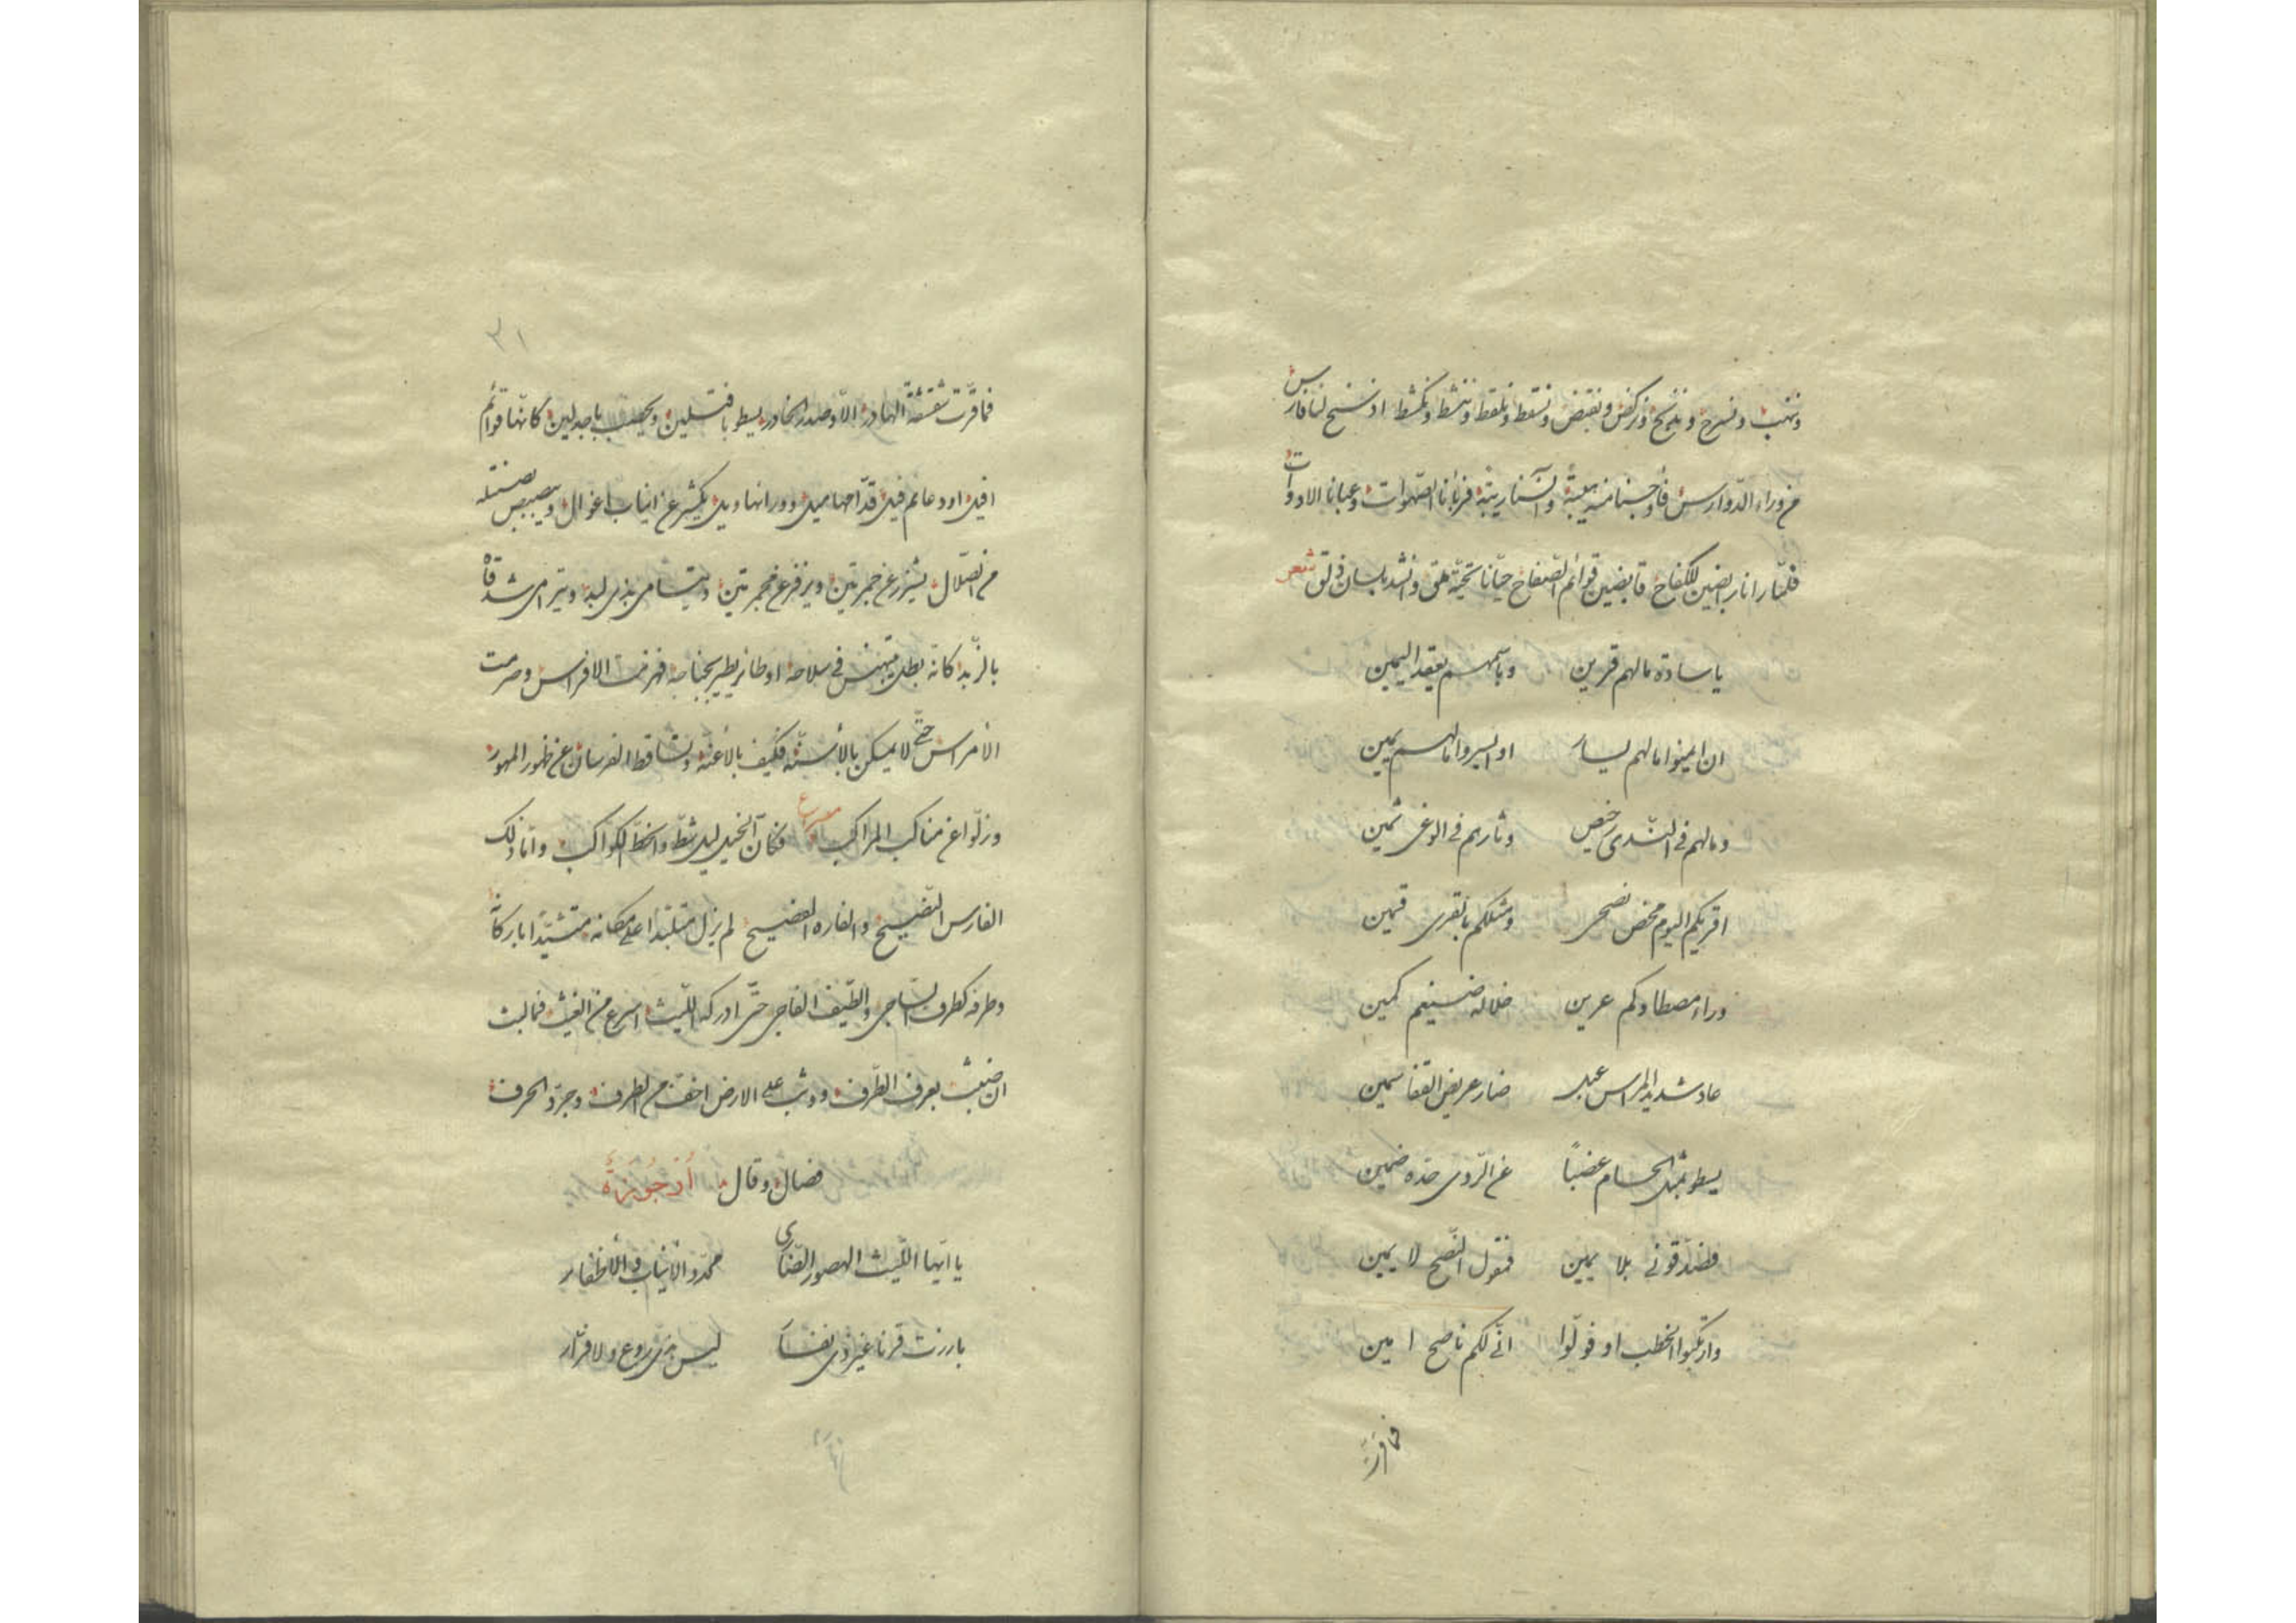 وننهب ونسرح ونركض وننقض ونسقط ونلقط وننشط ونكشط اذ سنح لنا فارس
من وراء الدوارس فأوجسنا منه وآنسنا ريبة فربأنا الصهوات وعبانا الادوات
فلمّا رانا رابضين للكفاح قابضين قوائم الصفاح حيّانا تحيّة ملق وانشد بلسان ذلق شعر
يا سادة مالهم قرين وباسمهم يعقد اليمين
ان ايمنوا مالهم يسار او ايسروا مالهم يمين
ومالهم في النّدى رخيص وثارهم في الوغى ثمين
اقريكم اليوم محض نصحى ومثلكم بالقرى قمين
وراء مصطادكم عرين خلاله ضيغم كمين
عاد شديد المراس عبل ضار عريض القفا سمين
يسطو بمثل الحسام عضباً عن الرّدى حدّه ضمين
فصدّقونى بلا يمين فقول النّصح لا يمين
وارتكبوا الخطب او فولّوا انّى لكم ناصح امين
فما قرّت
٣١
فما قرّت شقشقة الهادر الّا وصدر الخادر يسطو ويحصب باجدلين كانّها قوائم
افيل او دعائم فيل قدّامها ميل وورائها ويل يكشر عن انياب اغوال ويبصبص
من الصّلال يشزر عن جمرتين ويزفر عن مجمرتين ويتسامى بذى لبد ويترامى شدقاه
بالزّبد كانّه بطل يتبهنس فى سلاحه او طائر يطير بجناحه الافراس وصرمت
الأمراس حتّى لا يمكن بالأسنّة فكيف بالأعنّة وتساقط الفرسان عن ظهور المهور
وزلّوا عن مناكب المراكب مصراع فكأنّ الخيل ليل شطّ وانحطّ الكواكب وامّا ذلك
الفارس النّصيح والفاره الفصيح لم يزل متلبّدا على مكانه باركانه
وطرفه كطرف السّاجى والطّيف الفاجى حتّى ادركه اللّيث اسرع من الغيث فما لبث
ان ضبث بعرف الطّرف ووثب على الارض اخفّ من الطرف وجرّد الحرف
فصال وقال أرجوزة
يا ايّها اللّيث الهصور الضّارى محدّد الأنياب والأظفار
بارزت قرنا غير ذى نفار ليس بذى روع ولا فرّار